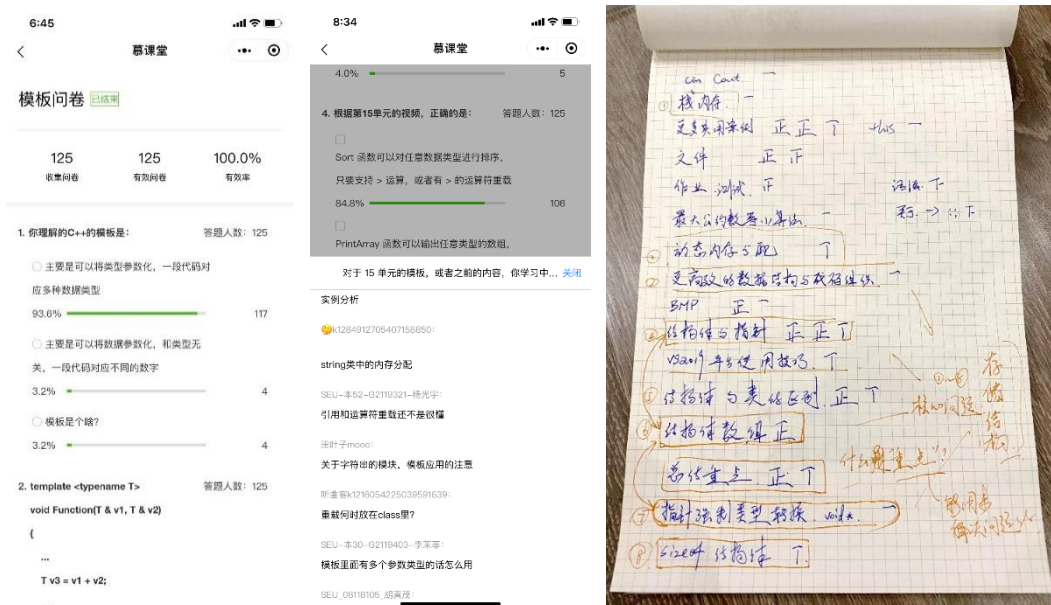 6:45
慕课堂
模板问卷 已结束
125 125 100.0%
收集问卷 有效问卷 有效率
1. 你理解的C++的模板是： 答题人数：125
主要是可以将类型参数化，一段代码对
应多种数据类型
93.6% 117
主要是可以将数据参数化，和类型无
关，一段代码对应不同的数字
3.2% 4
模板是个啥?
3.2% 4
2. template <typename T> 答题人数：125
void Function(T & v1, T & v2)
{
...
T v3 = v1 + v2;
8:34
慕课堂
4.0% 5
4. 根据第15单元的视频，正确的是： 答题人数：125
Sort 函数可以对任意数据类型进行排序，
只要支持 > 运算，或者有 > 的运算符重载
84.8% 106
PrintArray 函数可以输出任意类型的数组，
对于 15 单元的模板，或者之前的内容，你学习中... 关闭
实例分析
k1284912705407158850：
string类中的内存分配
SEU-本52-G2119321-杨光宇：
引用和运算符重载还不是很懂
田叶子mooc：
关于字符串的模块，模板应用的注意
听童客k1216054225039591639：
重载何时放在class里?
SEU-本30-G2119403-李茉菲：
模板里面有多个参数类型的话怎么用
SEU_08118105_胡真茂：
cin Cout 一
① 栈内存 一
更多实用案例 正 正 丅 this 一
文件 正 正
作业 测试 正 语法 丅
最大公约数等小算法 一
动态内存分配 丅
更高效的数据结构与代码组织 一
BMP 正 一
结构体与指针 正 正 丅
vs2019 平台使用技巧 丅
结构体与类的区别 正 丅
核心问题
存储结构
⑥ 结构体数组 正
什么是"重点"?
总结重点 正 丅
⑦ 指针强制类型转换 void* 一
⑧ sizeof 结构体 丅